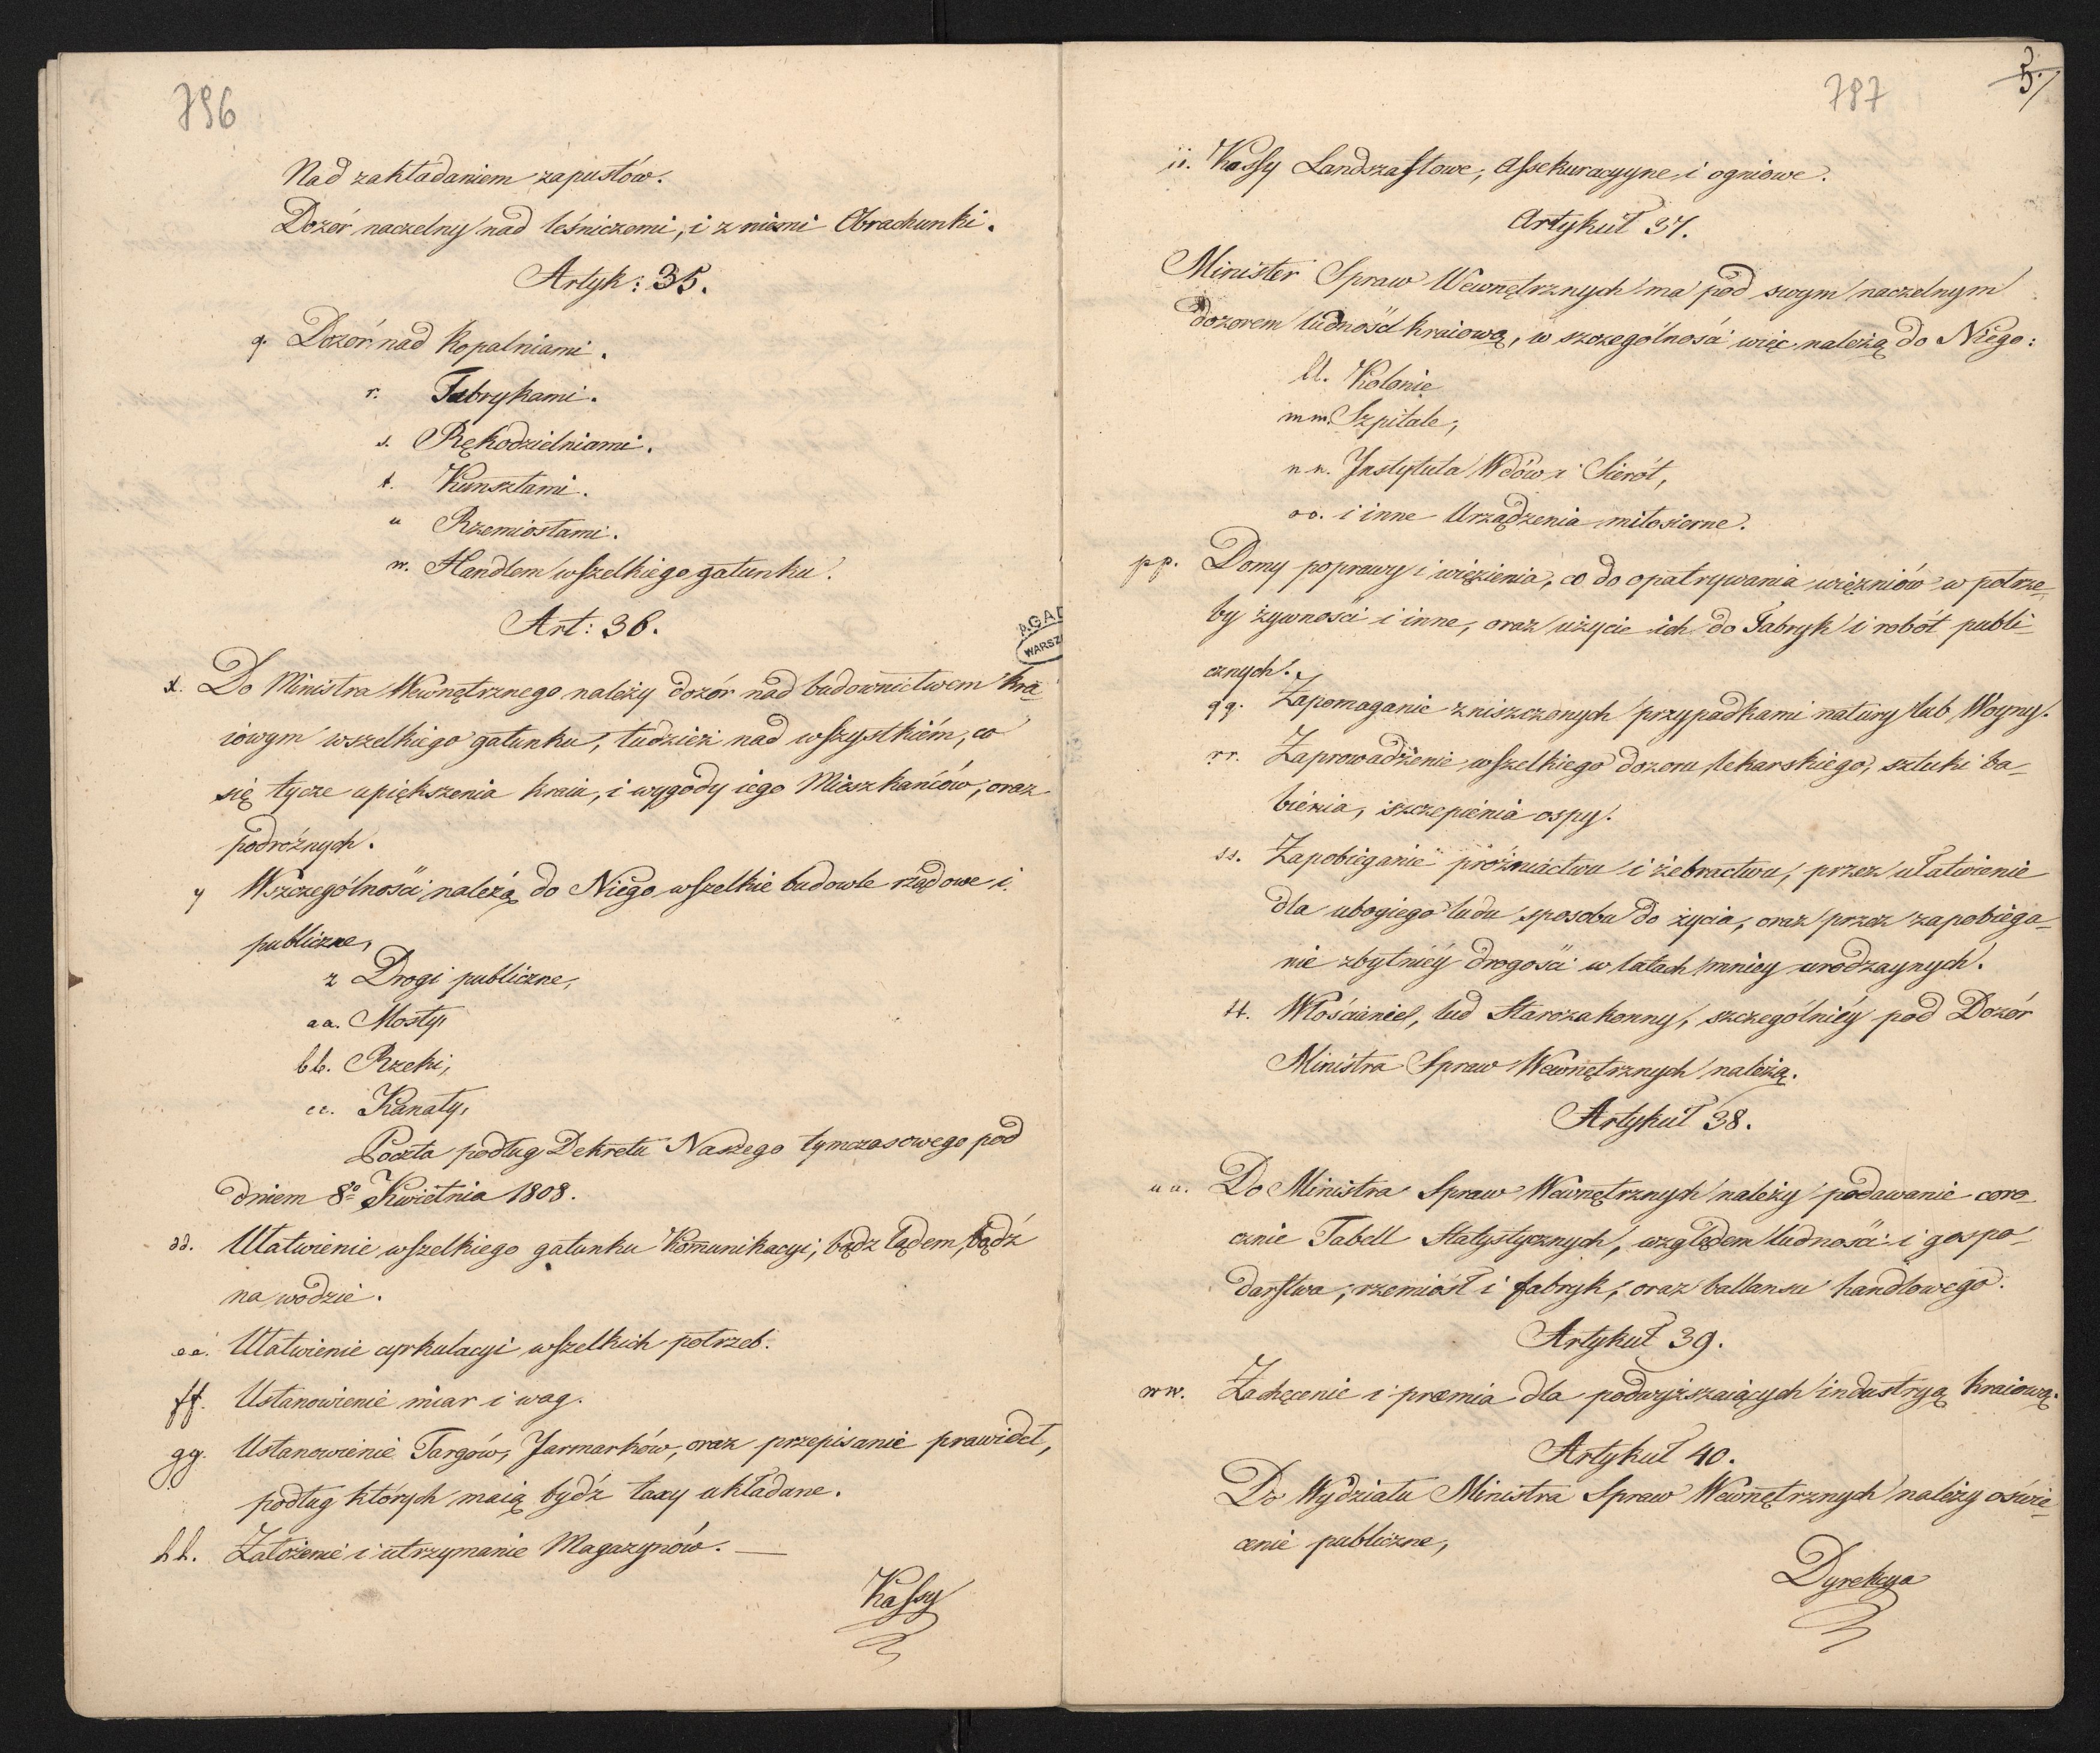 796
Nad zakładaniem zapustów.
Dozór naczelny nad leśniczemi, i z niemi Obrachunki.
Artyk: 35.
q. Dozór nad Kopalniami.
r. Fabrykami.
s. Rękodzielniami.
t. Kunsztami.
u Rzemiosłami.
w. Handlem wszelkiego gatunku.
Art: 36.
x. Do Ministra Wewnętrznego należy dozór nad budownictwem kra-
iowym wszelkiego gatunku, tudzież nad wszystkiém, co
się tycze upiększenia kraiu, i wygody iego Mieszkańców, oraz
podróżnych.
y Wszczególności należą do Niego wszelkie budowle rządowe i
publiczne,
z Drogi publiczne,
aa. Mosty,
bb. Rzeki,
cc. Kanały,
Poczta podług Dekretu Naszego tymczasowego pod
dniem 8o Kwietnia 1808.
dd. Ułatwienie wszelkiego gatunku Komunikacyi, bądz lądem, bądź
na wodzie.
ee. Ułatwienie cyrkulacyi wszelkich potrzeb.
ff. Ustanowienie miar i wag.
gg. Ustanowienie Targów, Jarmarków, oraz przepisanie prawideł,
podług których maią bydź taxy układane.
hh. Założenie i utrzymanie Magazynów. —
Kassy
A.G.A.D
WARSZ
787
ii. Kassy Landszaftowe, Assekuracyyne i ogniowe.
Artykuł 37.
Minister Spraw Wewnętrznych ma pod swym naczelnym
dozorem ludność kraiową, w szczególności więc należą do Niego:
ll. Kolonie
mm. Szpitale,
nn. Instytuta Wdów i Sierót,
oo. i inne Urządzenia miłosierne.
pp. Domy poprawy i więzienia, co do opatrywania więzniów w potrze-
by żywności i inne, oraz użycie ich do Fabryk i robót publi-
cznych.
qq. Zapomaganie zniszczonych przypadkami natury lub Woyny.
rr. Zaprowadzenie wszelkiego dozoru lekarskiego, sztuki ba-
bienia, szczepienia ospy.
ss. Zapobieganie próżniactwu i żebractwu, przez ułatwienie
dla ubogiego ludu sposobu do życia, oraz przez zapobiega-
nie zbytniéy drogości w latach mniey urodzaynych.
tt. Włościanie, lud Starozakonny, szczególniéy pod Dozór
Ministra Spraw Wewnętrznych należą.
Artykuł 38.
uu. Do Ministra Spraw Wewnętrznych należy podawanie coro
cznie Tabell Statystycznych, względem ludności i gospo-
darstwa, rzemiosł i fabryk, oraz ballansu handlowego.
Artykuł 39.
ww. Zachęcenie i præmia dla podwyższaiących industryą kraiową.
Artykuł 40.
Do Wydziału Ministra Spraw Wewnętrznych należy oświe-
cenie publiczne,
Dyrekcya